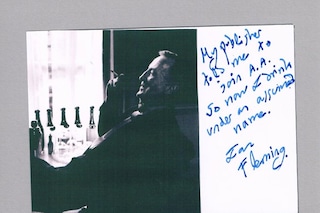 My publisher
told me to
join A.A.
So now I drink
under an assumed
name.
Ian
Fleming.